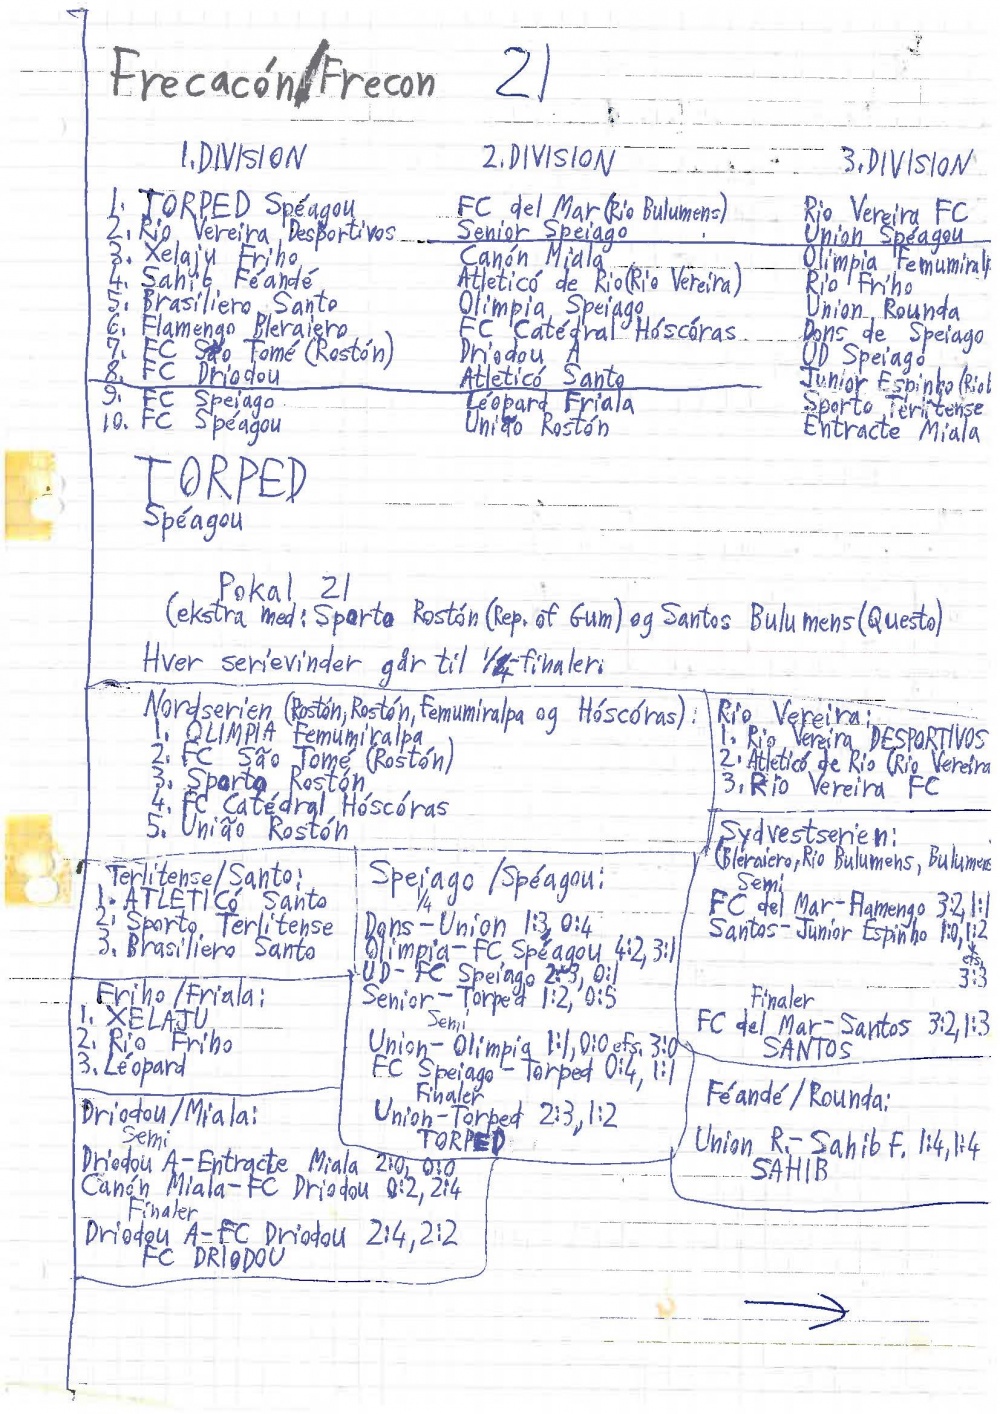 Frecacón/Frecon 21
1. DIVISION
1. TORPED Spéagou
2. Rio Vereira Desportivos
3. Xelaju Friho
4. Sahib Féandé
5. Brasiliero Santo
6. Flamengo Bleraiero
7. FC São Tomé (Rostón)
8. FC Driodou
9. FC Speiago
10. FC Spéagou
2. DIVISION
FC del Mar (Rio Bulumens)
Senior Speiago
Canón Miala
Atleticó de Rio (Rio Vereira)
Olimpia Speiago
FC Catédral Hóscóras
Driodou A
Atleticó Santo
Léopard Friala
União Rostón
3. DIVISION
Rio Vereira FC
Union Spéagou
Olimpia Femumiralp
Rio Friho
Union Rounda
Dons de Speiago
UD Speiago
Junior Espinho (Riol
Sporto Terlitense
Entracte Miala
TORPED
Spéagou
Pokal 21
(ekstra med: Sporto Rostón (Rep. of Gum) og Santos Bulumens (Questo)
Hver serievinder går til 1/4-finaler:
Nordserien (Rostón, Rostón, Femumiralpa og Hóscóras):
1. OLIMPIA Femumiralpa
2. FC São Tomé (Rostón)
3. Sporto Rostón
4. FC Catédral Hóscóras
5. União Rostón
Rio Vereira:
1. Rio Vereira DESPORTIVOS
2. Atleticó de Rio (Rio Vereira
3. Rio Vereira FC
Terlitense/Santo:
1. ATLETICÓ Santo
2. Sporto Terlitense
3. Brasiliero Santo
Speiago/Spéagou:
1/4
Dons-Union 1:3, 0:4
Olimpia-FC Spéagou 4:2, 3:1
UD-FC Speiago 2:3, 0:1
Senior-Torped 1:2, 0:5
Semi
Union-Olimpia 1:1, 0:0 efs. 3:0
FC Speiago-Torped 0:4, 1:1
Finaler
Union-Torped 2:3, 1:2
TORPED
Sydvestserien:
(Bleraiero, Rio Bulumens, Bulumens
Semi
FC del Mar-Flamengo 3:2, 1:1
Santos-Junior Espinho 1:0, 1:2
efs.
3:3
Finaler
FC del Mar-Santos 3:2, 1:3
SANTOS
Friho/Friala:
1. XELAJU
2. Rio Friho
3. Léopard
Driodou/Miala:
Semi
Driodou A-Entracte Miala 2:0, 0:0
Canón Miala-FC Driodou 0:2, 2:4
Finaler
Driodou A-FC Driodou 2:4, 2:2
FC DRIODOU
Féandé/Rounda:
Union R.-Sahib F. 1:4, 1:4
SAHIB